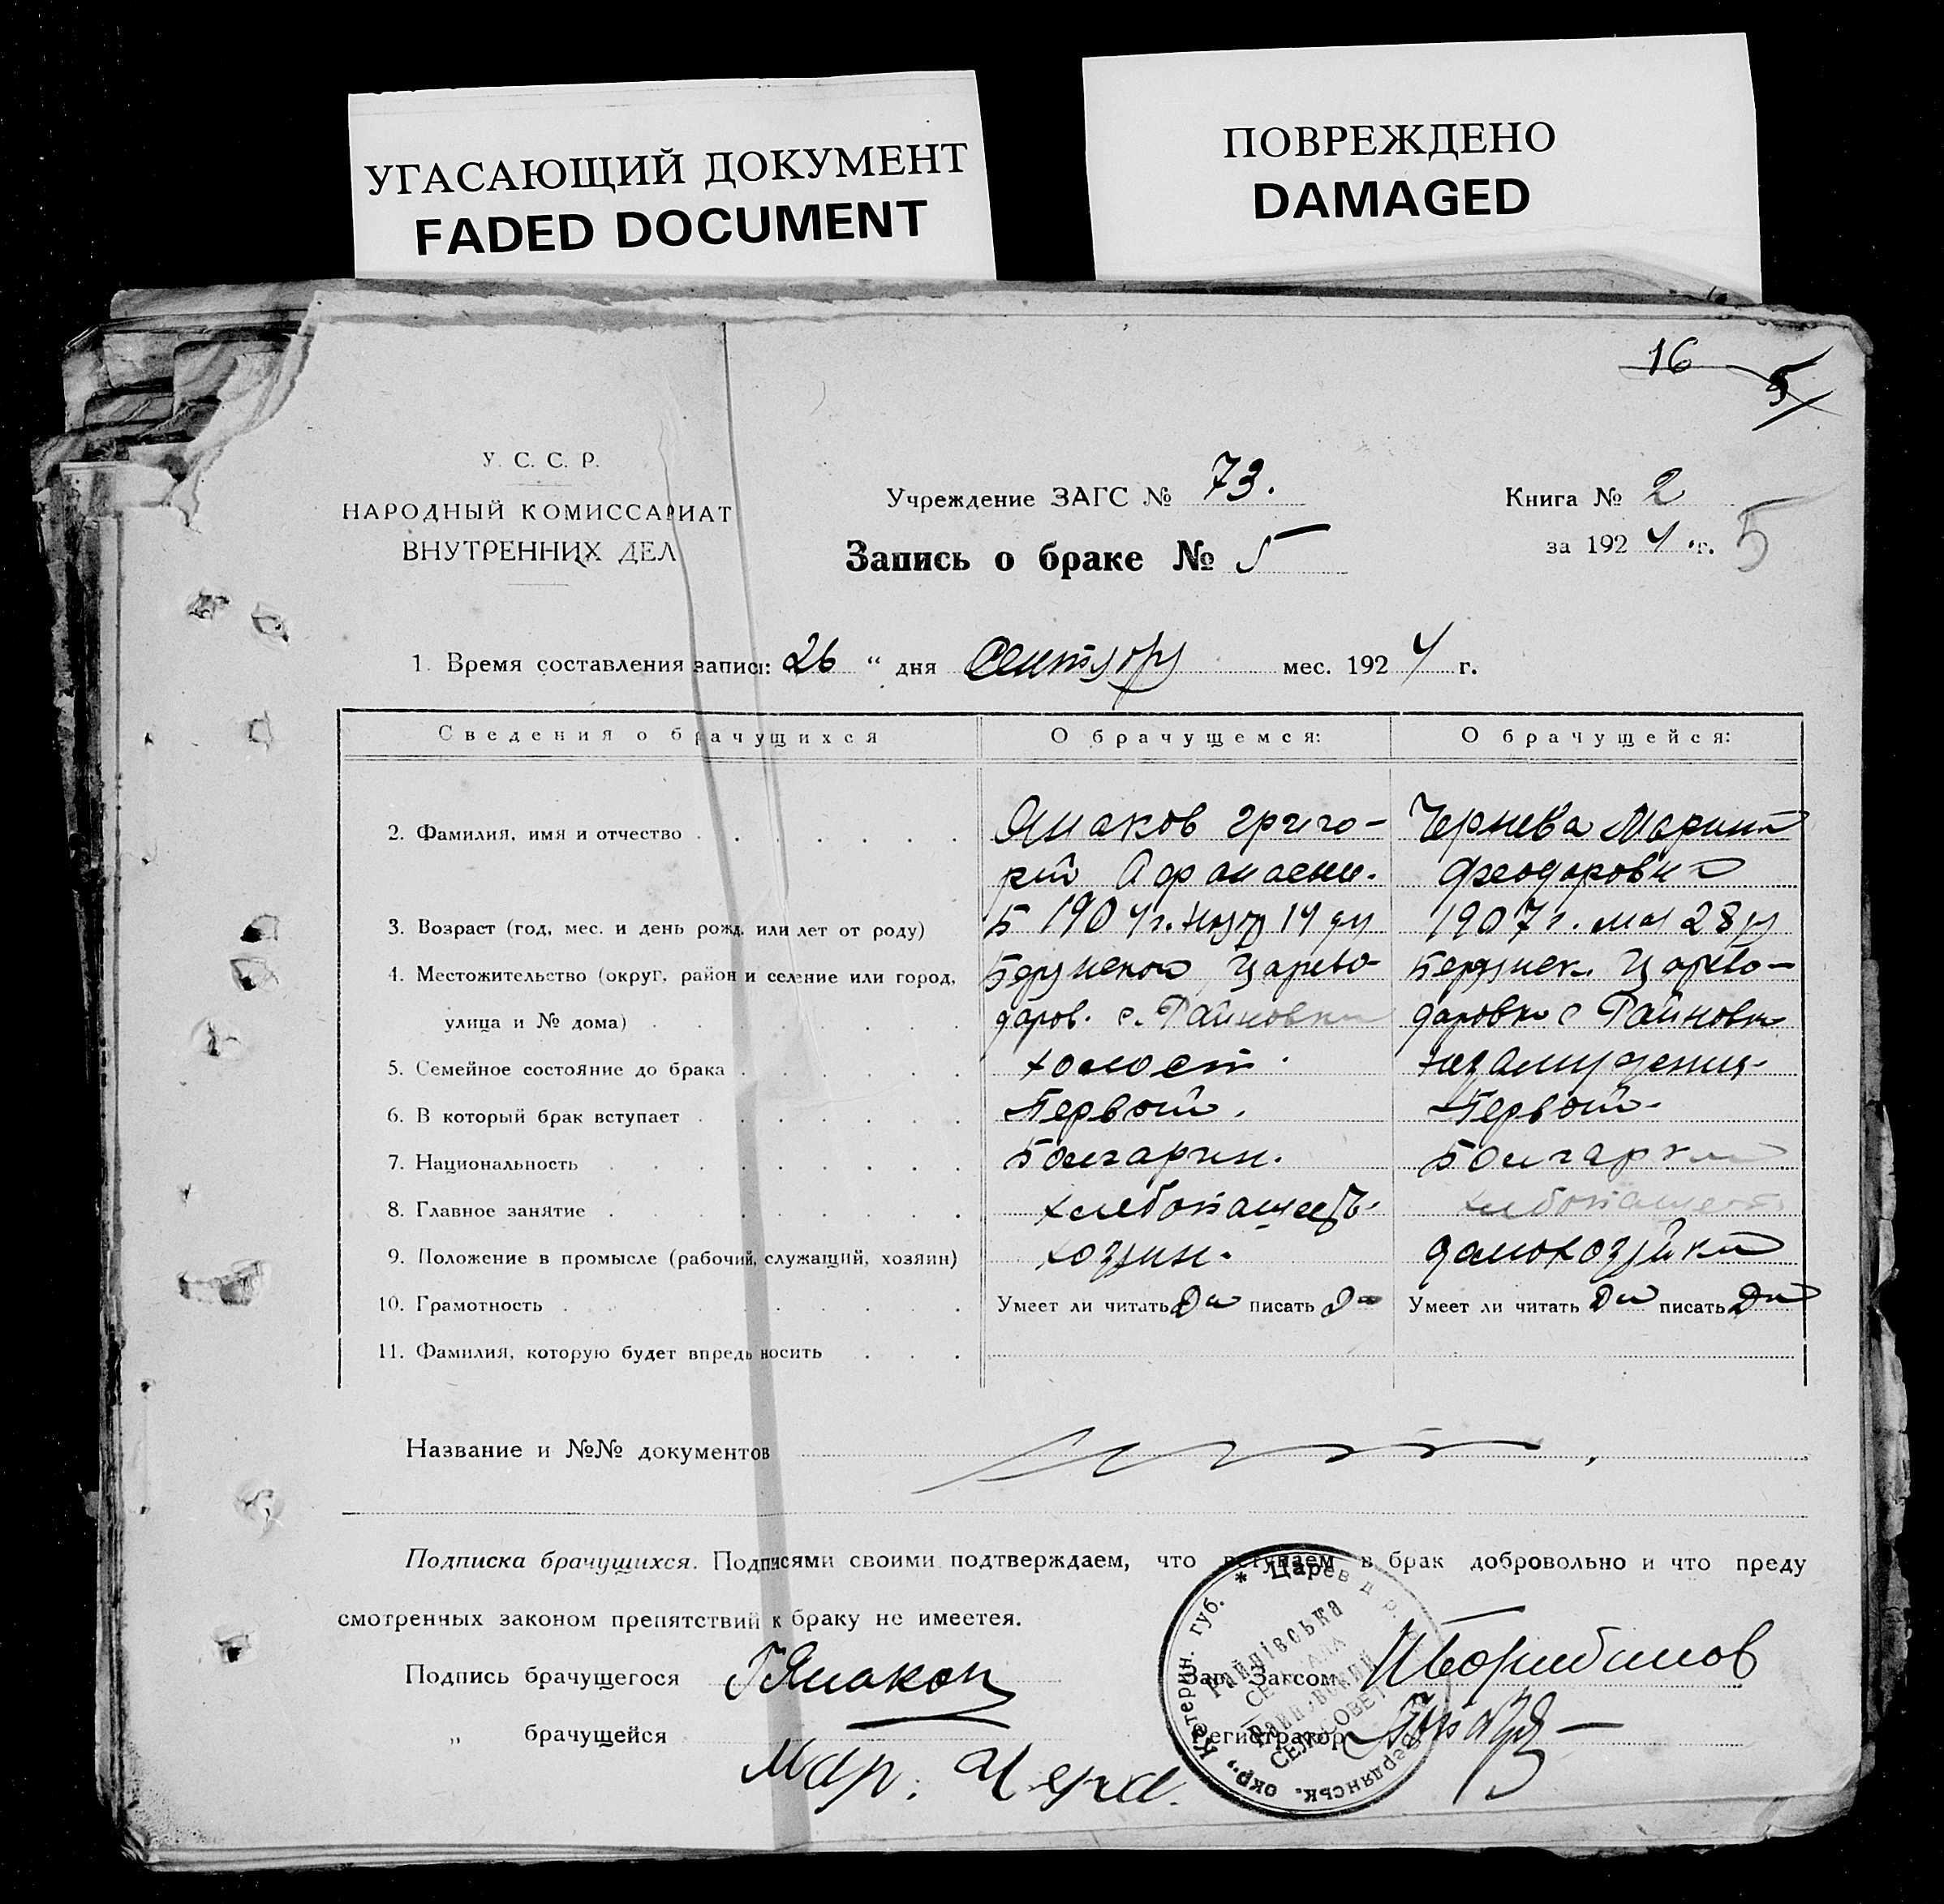 УГАСАЮЩИЙ ДОКУМЕНТ
FADED DOCUMENT
ПОВРЕЖДЕНО
DAMAGED
16
5
У. С. С. Р.
НАРОДНЫЙ КОМИССАРИАТ
ВНУТРЕННИХ ДЕЛ
Учреждение ЗАГС № 73.
Книга № 2
за 1924 г. 5
Запись о браке № 5
1. Время составления записи: 26 “ дня Сентября мес. 1924 г.
Сведения о брачущихся О брачущемся: О брачущейся:
2. Фамилия, имя и отчество Ямаков Григо- Чернева Марина
рий Афанасьев. Феодоровна
3. Возраст (год, мес. и день рожд. или лет от роду) 1904 г. 14 1907 г. мая 28
4. Местожительство (округ, район и селение или город, Бердянской Царево- Бердянск. Царево-
улица и № дома) даров. с. Райновки даровки с Райновки
5. Семейное состояние до брака холост.
6. В который брак вступает Первый. Первый-
7. Национальность Болгарин. Болгарка
8. Главное занятие хлебопашец. хлебопашест
9. Положение в промысле (рабочий, служащий, хозяин) хозяин. домохозяйка
10. Грамотность Умеет ли читать Да писать Да Умеет ли читать Да писать Да
11. Фамилия, которую будет впредь носить
Название и №№ документов
Подписка брачущихся. Подписями своими подтверждаем, что вступаем в брак добровольно и что преду
смотренных законом препятствий к браку не имеется.
Подпись брачущегося ГЯмаков Зав. Загсом
„ брачущейся Мар. Черна. Регистратор
* Царев д. р. Бердянськ. окр., Катерин. губ.
Райнівська
СЕЛРАДА
Райновский
СЕЛЬСОВЕТ